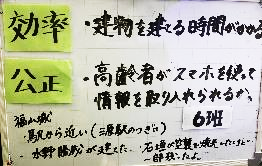 効率
・建物を建てる時間がかかる
公正
・高齢者がスマホを使って
情報を取り入れられるか。
6班
福山城
・駅から近い(三原駅のつぎに)
・水野勝成が建てた
・石垣が